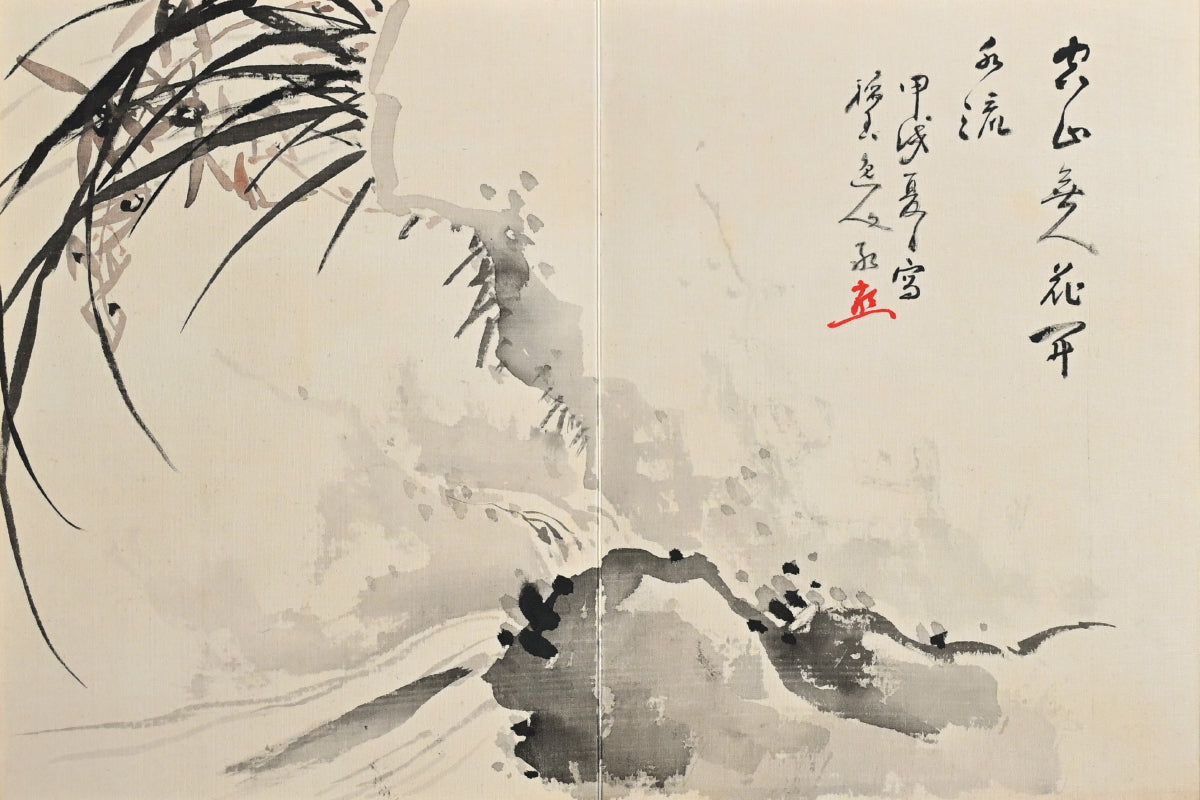 空山無人花開
水流
甲戌夏日寫
逸人